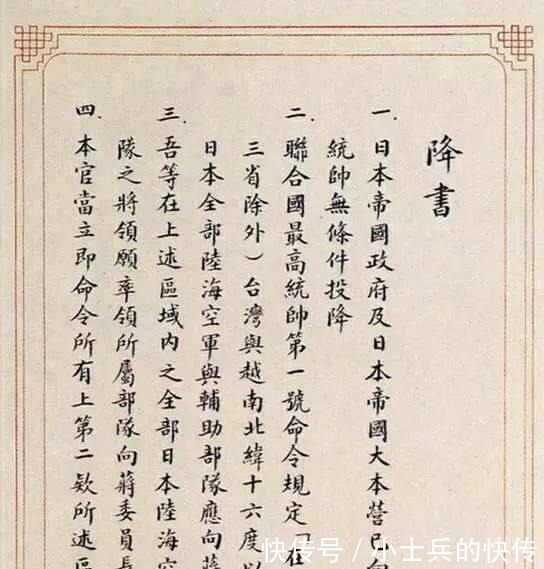 降書
一.日本帝國政府及日本帝國大本營已向
統帥無條件投降
二.聯合國最高統帥第一號命令規定「在
三省除外）台灣與越南北緯十六度以
日本全部陸海空軍與輔助部隊應向蔣
三.吾等在上述區域內之全部日本陸海空
隊之將領願率領所屬部隊向蔣委員長
四.本官當立即命令所有上第二欵所述區
快传号 / 小士兵的快传